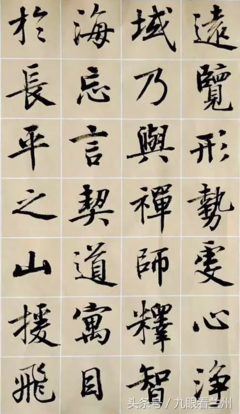 遠覽形勢虔心浄
域乃與禪師釋智
海忘言契道寓目
於長平之山援飛
头条号 / 九眼看兰州